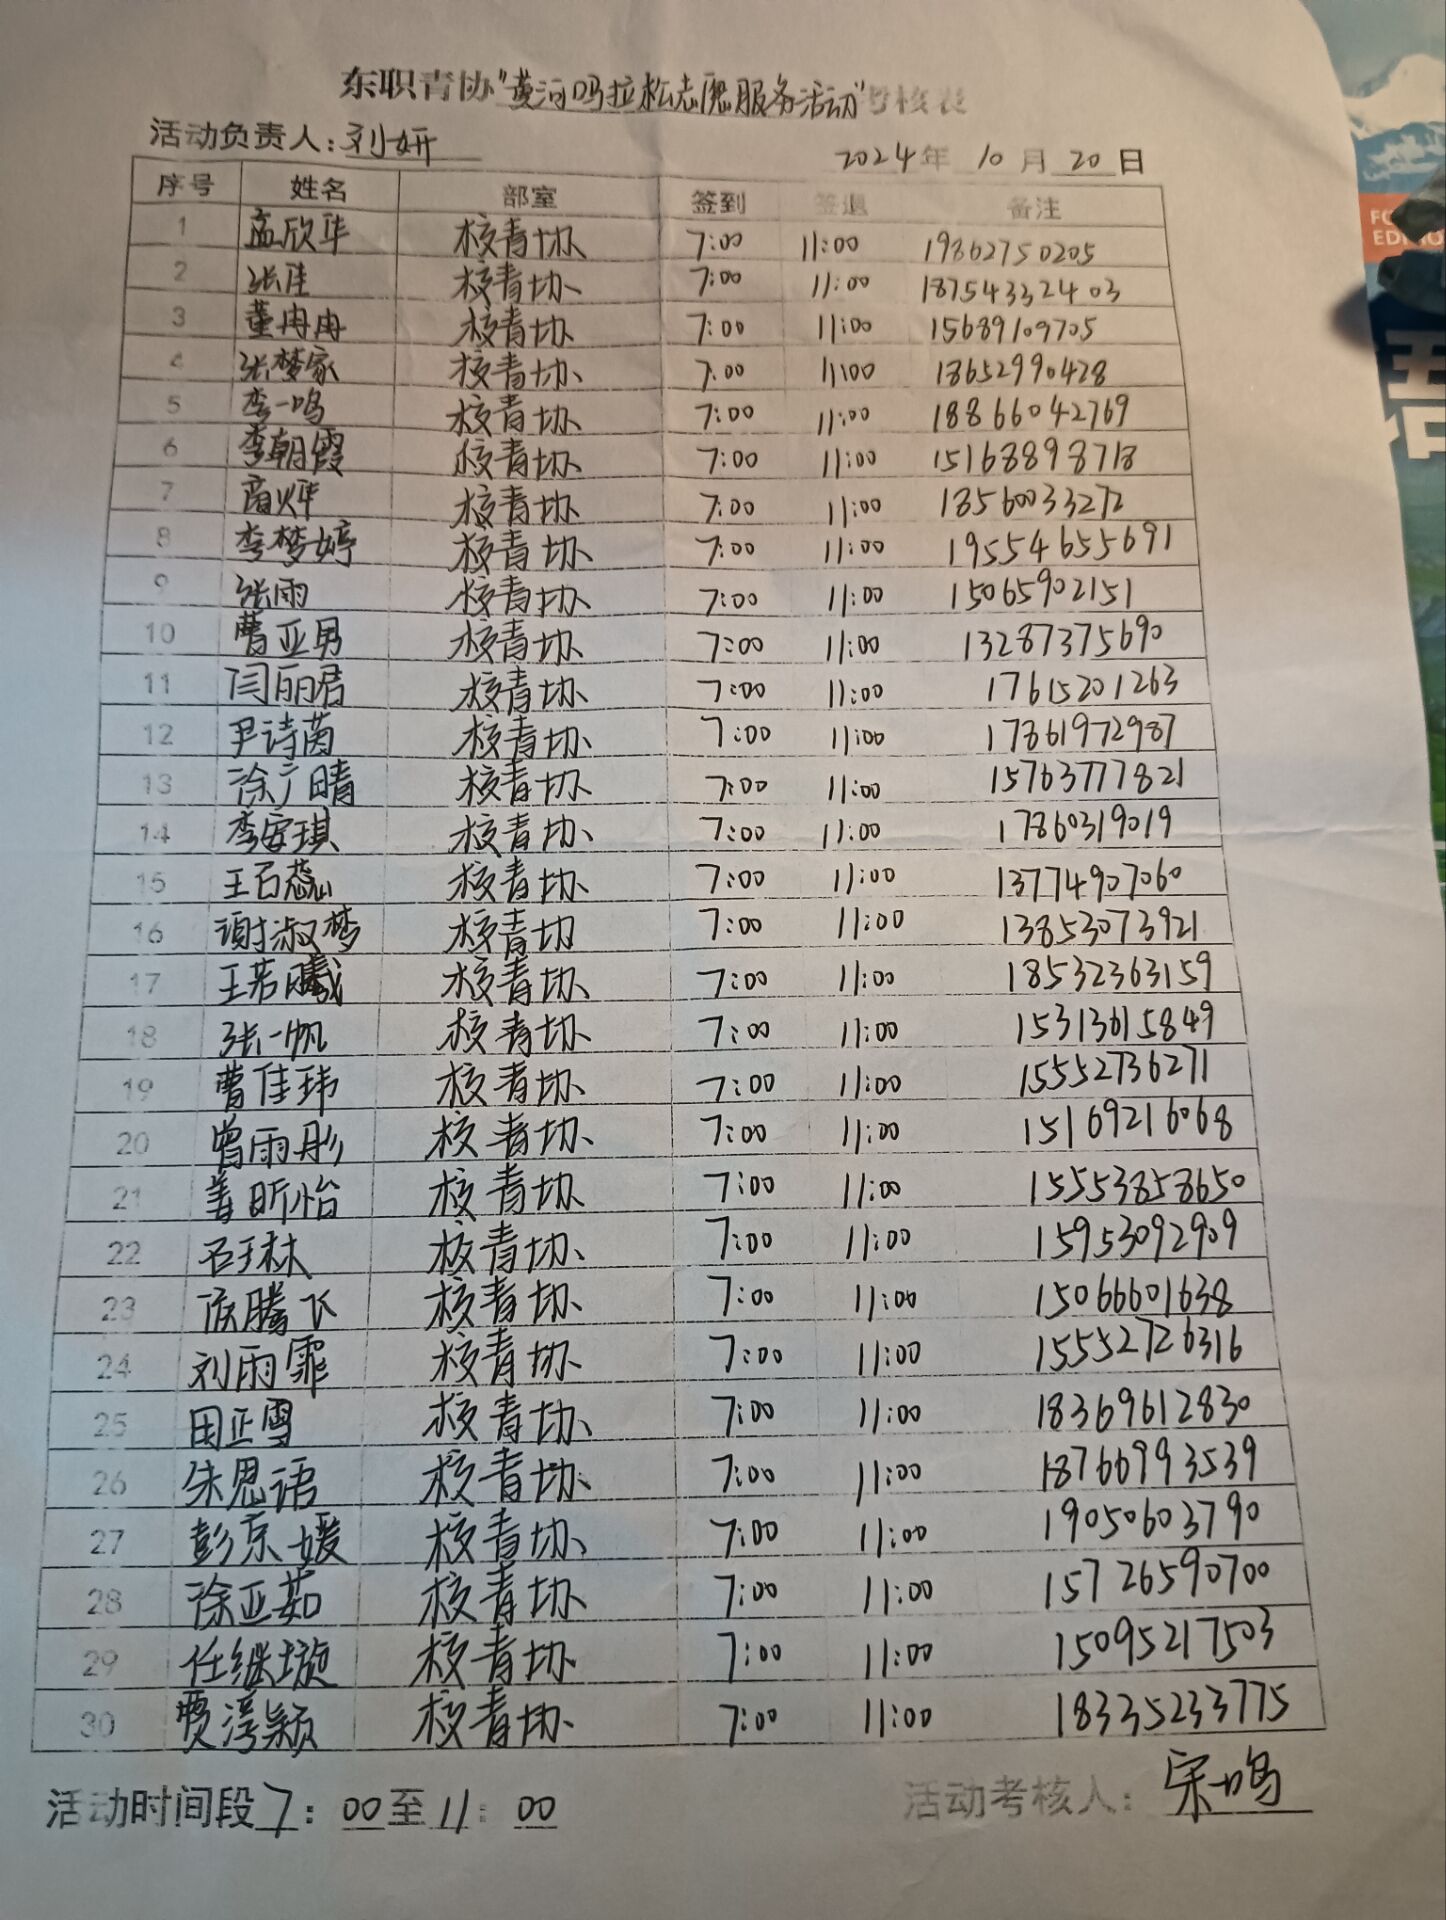 东职青协"黄河吗拉松志愿服务活动"考核表
活动负责人:刘妍
2024年 10月 20日
序号 姓名 部室 签到 签退 备注
1 孟欣华 校青协 7:00 11:00 19862750205
2 张佳 校青协 7:00 11:00 18754332403
3 董冉冉 校青协 7:00 11:00 15689109705
4 张梦家 校青协 7:00 11:00 18652990428
5 李一鸣 校青协 7:00 11:00 18866042769
6 李朝霞 校青协 7:00 11:00 15168898718
7 校青协 7:00 11:00 18560033272
8 李梦婷 校青协 7:00 11:00 19554655691
9 张雨 校青协 7:00 11:00 15065902151
10 曹亚男 校青协 7:00 11:00 13287375690
11 闫丽君 校青协 7:00 11:00 17615201263
12 尹诗茵 校青协 7:00 11:00 17861972987
13 徐广晴 校青协 7:00 11:00 15763777821
14 李安琪 校青协 7:00 11:00 17860319019
15 王石蕊 校青协 7:00 11:00 13774907060
16 谢淑梦 校青协 7:00 11:00 13853073921
17 王若曦 校青协 7:00 11:00 18532363159
18 张一帆 校青协 7:00 11:00 15313615849
19 曹佳玮 校青协 7:00 11:00 15552736271
20 曾雨彤 校青协 7:00 11:00 15169216068
21 姜昕怡 校青协 7:00 11:00 15553858650
22 石玉林 校青协 7:00 11:00 15953092909
23 侯腾飞 校青协 7:00 11:00 15066601638
24 刘雨霏 校青协 7:00 11:00 15552726316
25 田正雪 校青协 7:00 11:00 18369612830
26 朱思语 校青协 7:00 11:00 18766993539
27 彭东媛 校青协 7:00 11:00 19050603790
28 徐亚茹 校青协 7:00 11:00 15726590700
29 任继璇 校青协 7:00 11:00 15095217503
30 贾淳颖 校青协 7:00 11:00 18335233775
活动时间段7:00至11:00 活动考核人:宋一鸣